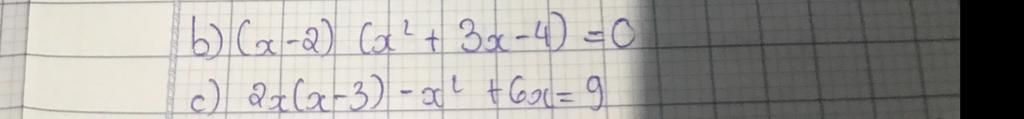 b) (x-2) (x² + 3x-4) = 0
c) 2x(x-3) - x² + 6x = 9